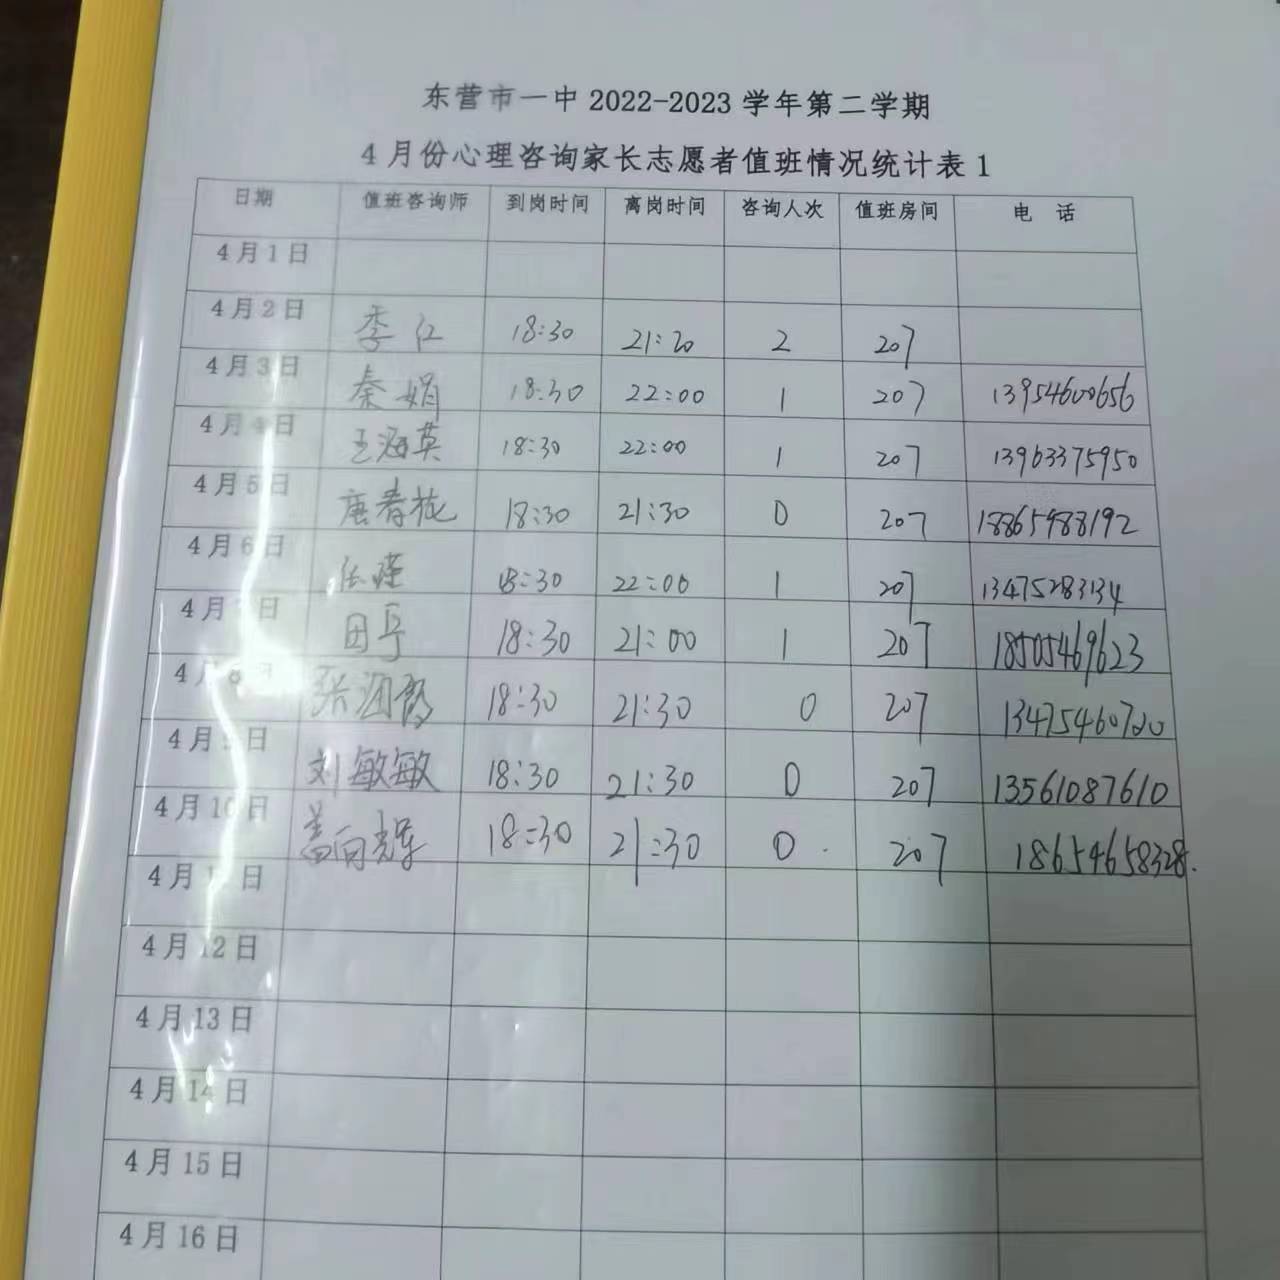 东营市一中 2022-2023 学年第二学期
4 月份心理咨询家长志愿者值班情况统计表 1
日期 值班咨询师 到岗时间 离岗时间 咨询人次 值班房间 电 话
4 月 1 日
4 月 2 日 季红 18:30 21:20 2 207
4 月 3 日 秦娟 18:30 22:00 1 207 13954600656
4 月 4 日 王海英 18:30 22:00 1 207 13963375950
4 月 5 日 唐春 18:30 21:30 0 207 18865988192
4 月 6 日 任 18:30 22:00 1 207 13475283134
4 月 日 田 18:30 21:00 1 207 18505469623
4 月 8 日 张 18:30 21:30 0 207 13475460720
4 月 9 日 刘敏敏 18:30 21:30 0 207 13561087610
4 月 10 日 盖向辉 18:30 21:30 0 207 18654658328.
4 月 1 日
4 月 12 日
4 月 13 日
4 月 14 日
4 月 15 日
4 月 16 日